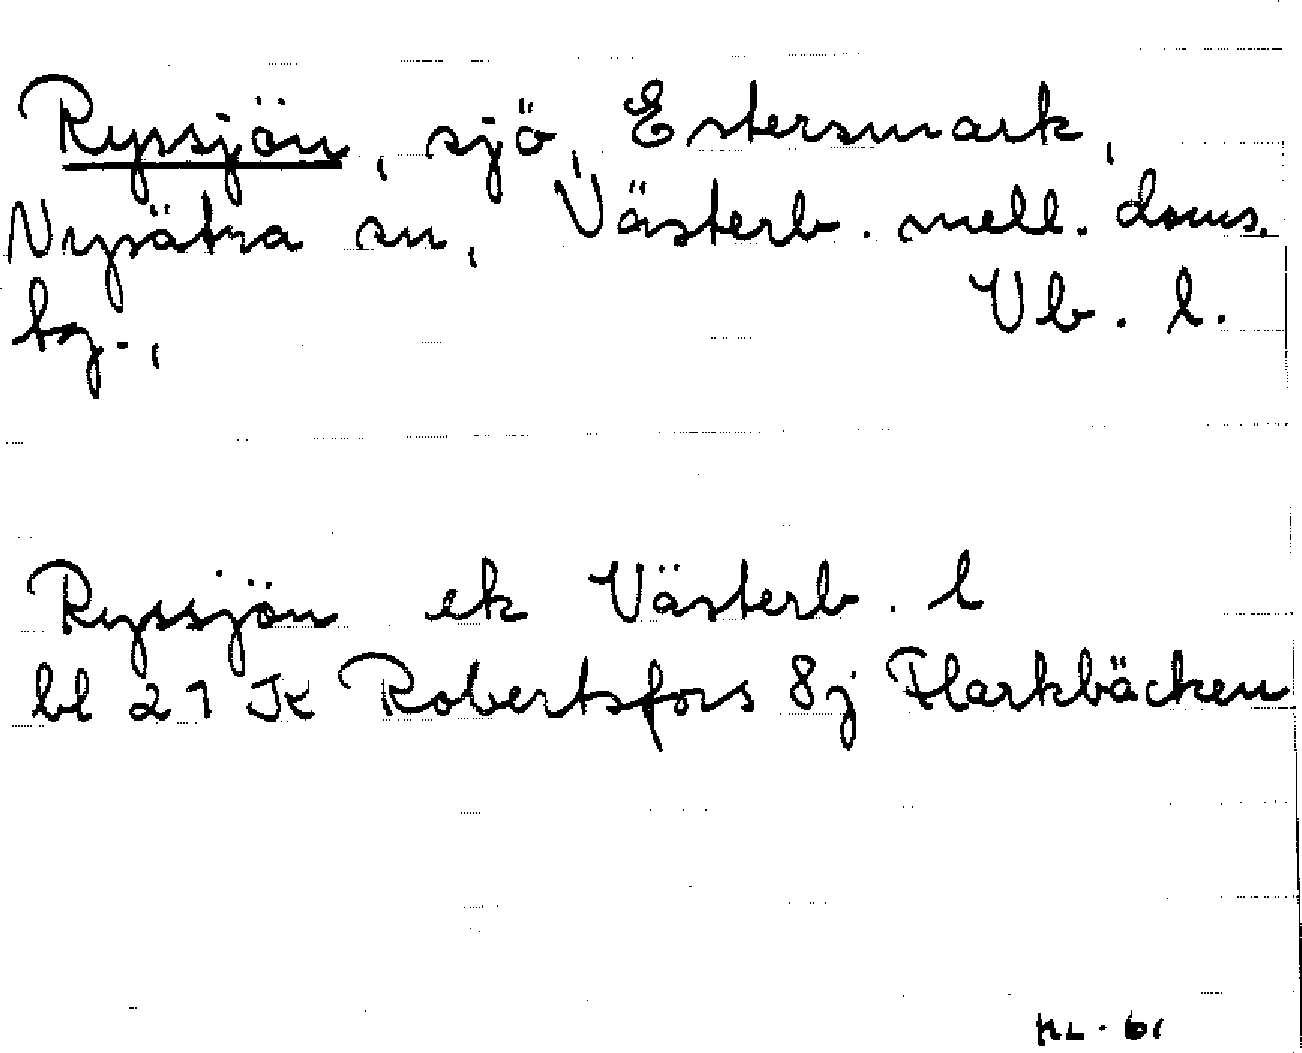 Ryssjön, sjö, Estersmark,
Nysätra sn, Västerb. mell. doms.
bg.,
Vb. l.
Ryssjön ek Västerb. l
bl 21 K Robertsfors 8j Flarkbäcken